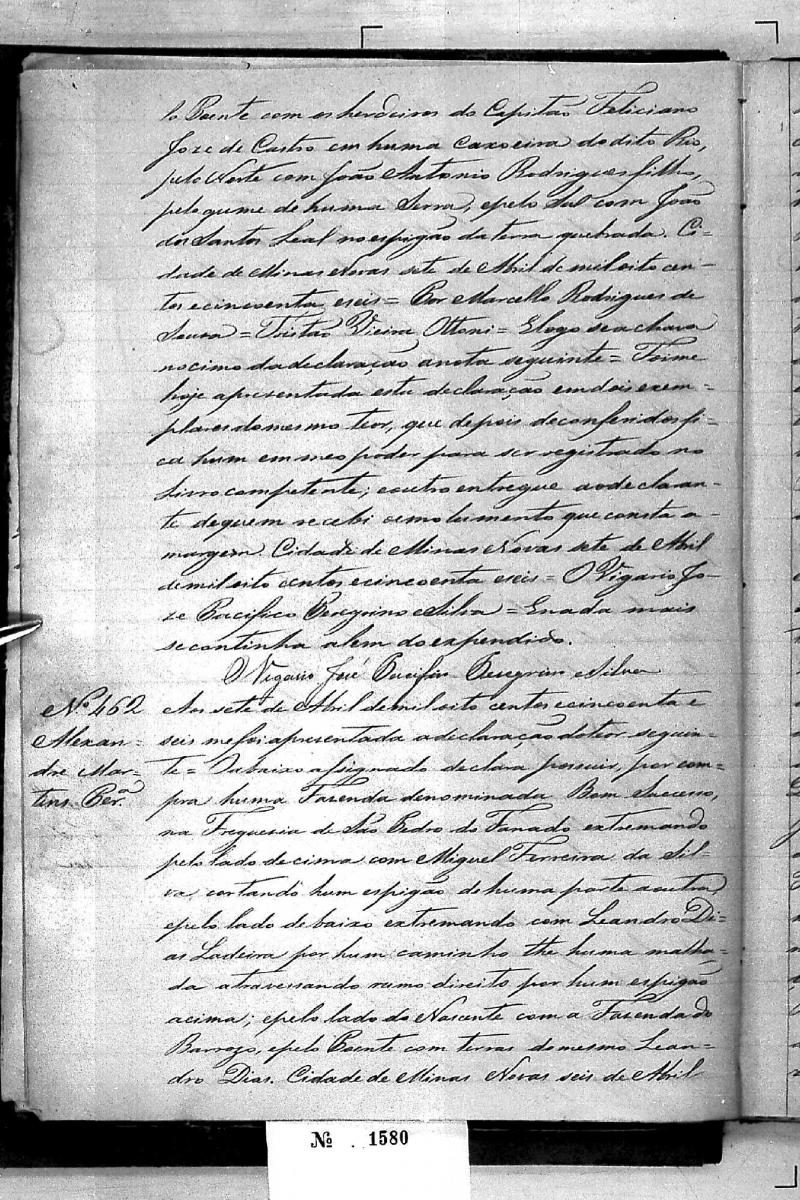 lo Poente com os herdeiros do Capitão Feliciano
Joze de Castro em huma caxoeira do dito Rio,
pelo Norte com João Antonio Rodrigues filho,
pelo gume de huma Serra, e pelo Sul com João
dos Santos Leal no espigão da terra quebrada. Ci=
dade de Minas Novas sete de Abril de mil oito cen=
tos e cincoenta e seis = Por Marcello Rodrigues de
Souza = Tristão Vieira Ottoni = E logo se achava
no cimo da declaração a nota seguinte = Foi me
hoje apresentada esta declaração em dois exem=
plares do mesmo teor, que depois de conferidos fi=
ca hum em meo poder para ser registrado no
Livro competente; e outro entregue ao declaran=
te de quem recebi o emolumento que consta a=
margem. Cidade de Minas Novas sete de Abril
de mil oito centos e cincoenta e seis = O Vigario Jo=
ze Pacifico Peregrino e Silva = E nada mais
se continha alem do expendido.
O Vigario José Pacifico Peregrino e Silva
Nº 462
Alexan=
dre Mar=
tins Perª
Aos sete de Abril de mil oito centos e cincoenta e
seis me foi apresentada a declaração do teor seguin=
te = O abaixo assignado declara possuir, por com=
pra huma Fazenda denominada Bom Successo,
na Freguesia de São Pedro do Fanado extremando
pelo lado de cima com Miguel Ferreira da Sil=
va, cortando hum espigão de huma parte a outra
e pelo lado de baixo extremando com Leandro Di=
as Ladeira por hum caminho the huma malha=
da atravessando rumo direito por hum espigão
acima; e pelo lado do Nascente com a Fazenda do
Barrozo, e pelo Poente com terras do mesmo Lean=
dro Dias. Cidade de Minas Novas seis de Abril
Nº . 1580